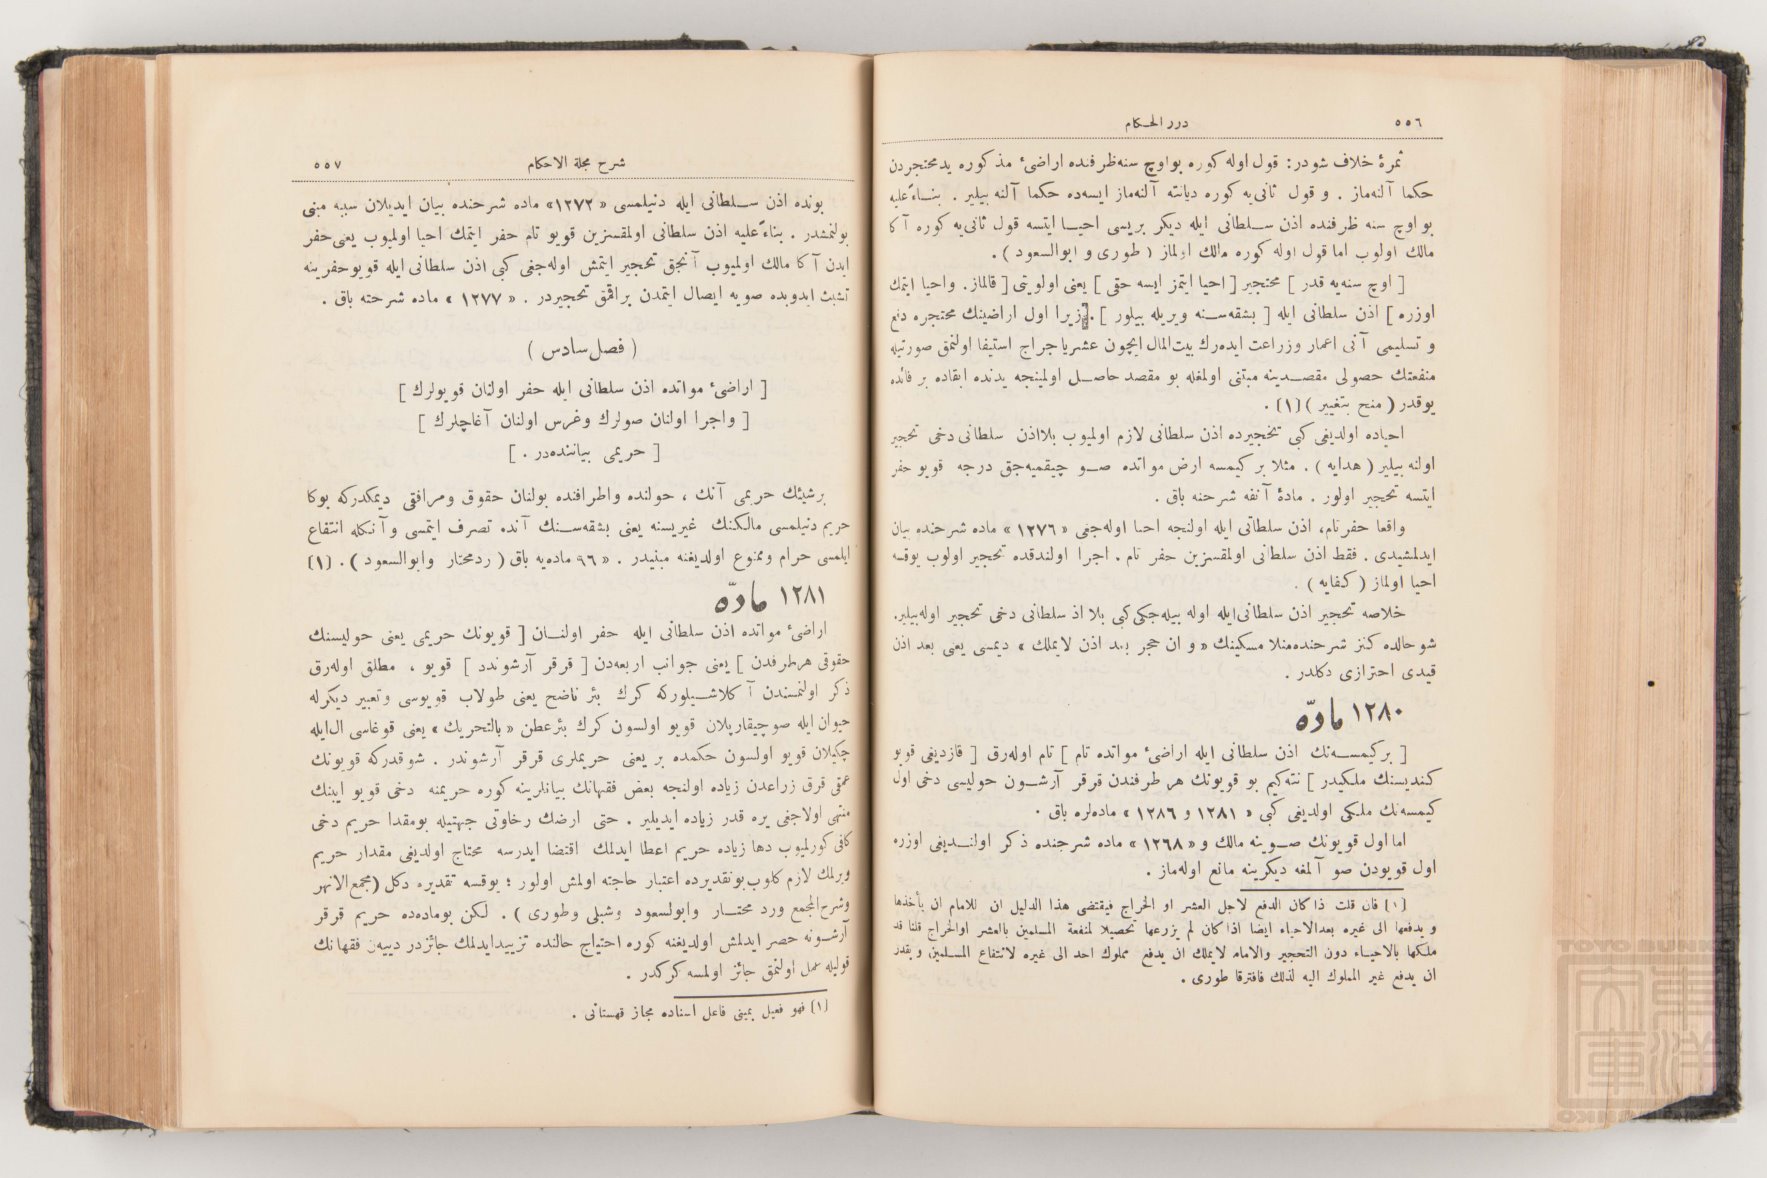 ٥٥٦
درر الحـكام
ثمرۀ خلاف شودر: قول اوله كوره بو اوچ سنه ظرفنده اراضئ مذكوره يد محتجردن
حكما آلنه‌ماز . و قول ثانى‌يه كوره ديانته آلنه‌ماز ايسه‌ده حكما آلنه بيلير . بنــاءً عليه
بو اوچ سنه ظرفنده اذن ســلطانى ايله ديكر بريسى احيــا ايتسه قول ثانى‌يه كوره آكا
مالك اولوب اما قول اوله كوره مالك اولماز ( طورى و ابوالسعود ) .
[ اوچ سنه‌يه قدر ] محتجير [ احيا ايتمز ايسه حقى ] يعنى اولويتى [ قالماز. واحيا ايتمك
اوزره ] اذن سلطانى ايله [ بشقه‌ســنه ويريله بيلور ] . زيرا اول اراضينك محتجره دفع
و تسليمى آنى اعمار وزراعت ايده‌رك بيت‌المال ايچون عشر يا خراج استيفا اولنمق صورتيله
منفعتك حصولى مقصــدينه مبتنى اولمغله بو مقصد حاصــل اولمينجه يدنده ابقاده بر فائده
يوقدر ( منح بتغيير ) [١] .
احياده اولديغى كبى تحجيرده اذن سلطانى لازم اولميوب بلا اذن سلطانى دخى تحجير
اولنه بيلير ( هدايه ) . مثلا بر كيمسه ارض مواتده صــو چيقميه‌جق درجه قويو حفر
ايتسه تحجير اولور . مادۀ آنفه شرحنه باق .
واقعا حفر تام، اذن سلطانى ايله اولنجه احيا اوله‌جغى « ١٢٧٦ » ماده شرحنده بيان
ايدلمشيدى . فقط اذن سلطانى اولمقسزين حفر تام . اجرا اولندقده تحجير اولوب يوقسه
احيا اولماز ( كفايه ) .
خلاصه تحجير اذن سلطانى‌ايله اوله بيله‌جكى كبى بلا اذن سلطانى دخى تحجير اوله‌بيلير.
شو حالده كنز شرحنده منلا مسكينك « و ان حجر بعد اذن لايملك » ديمسى يعنى بعد اذن
قيدى احترازى دكلدر .
١٢٨٠ مادّه
[ بر كيمســه‌نك اذن سلطانى ايله اراضئ مواتده تام ] تام اوله‌رق [ قازديغى قويو
كنديسنك ملكيدر ] نته‌كيم بو قويونك هر طرفندن قرقر آرشــون حوليسى دخى اول
كيمسه‌نك ملكى اولديغى كبى « ١٢٨١ و ١٢٨٦ » ماده‌لره باق .
اما اول قويونك صــوينه مالك و « ١٢٦٨ » ماده شرحنده ذكر اولنــديغى اوزره
اول قويودن صو آلمغه ديكرينه مانع اوله‌ماز .
[١] فان قلت اذا كان الدفع لاجل العشر او الخراج فيقتضى هذا الدليل ان للامام ان يأخذها
و يدفعها الى غيره بعد الاحياء ايضا اذا كان لم يزرعها تحصيلا لمنفعة المسلمين بالعشر اوالخراج قلنا قد
ملكها بالاحيــاء دون التحجير والامام لايملك ان يدفع مملوك احد الى غيره لانتفاع المســلمين و يقدر
ان يدفع غير المملوك اليه لذلك فافترقا طورى .
شرح مجلة الاحكام
٥٥٧
بونده اذن ســلطانى ايله دنيلمسى « ١٢٧٢» ماده شرحنده بيان ايديلان سببه مبنى
بولنمشدر . بناءً عليه اذن سلطانى اولمقسزين قويو تام حفر ايتمك احيا اولميوب يعنى حفر
ايدن آكا مالك اولميوب آنجق تحجير ايتمش اوله‌جغى كبى اذن سلطانى ايله قويو حفرينه
تشبث ايدوبده صويه ايصال ايتمدن براقمق تحجيردر . « ١٢٧٧ » ماده شرحنه باق .
( فصل سادس )
[ اراضئ مواتده اذن سلطانى ايله حفر اولنان قويولرك ]
[ واجرا اولنان صولرك وغرس اولنان آغاچلرك ]
[ حريمى بياننده‌در . ]
برشيئك حريمى آنك ، حولنده واطرافنده بولنان حقوق ومرافقى ديمكدركه بوكا
حريم دنيلمسى مالكنك غيريسنه يعنى بشقه‌ســنك آنده تصرف ايتمسى وآنكله انتفاع
ايلمسى حرام وممنوع اولديغنه مبنيدر . « ٩٦ ماده‌يه باق ( ردمحتار وابوالسعود ) . [١]
١٢٨١ مادّه
اراضئ مواتده اذن سلطانى ايله حفر اولنــان [ قويونك حريمى يعنى حوليسنك
حقوقى هر طرفدن ] يعنى جوانب اربعه‌دن [ قرقر آرشوندر ] قويو ، مطلق اوله‌رق
ذكر اولنمسندن آكلاشــيلوركه كرك بئر ناضح يعنى طولاب قويوسى وتعبير ديكرله
حيوان ايله صو چيقاريلان قويو اولسون كرك بئر عطن « بالتحريك » يعنى قوغاسى ال‌ايله
چكيلان قويو اولسون حكمده بر يعنى حريملرى قرقر آرشوندر . شوقدركه قويونك
عمقى قرق زراعدن زياده اولنجه بعض فقهانك بيانلرينه كوره حريمنه دخى قويو ايپنك
منتهى اولاجغى يره قدر زياده ايديلير . حتى ارضك رخاوتى جهتيله بومقدار حريم دخى
كافى كورلميوب دها زياده حريم اعطا ايدلمك اقتضا ايدرسه محتاج اولديغى مقدار حريم
ويرلمك لازم كلوب بوتقديرده اعتبار حاجته اولمش اولور ؛ يوقسه تقديره دكل (مجمع‌الانهر
وشرح‌المجمع ورد محتــار وابوالسعود وشبلى وطورى ) . لكن بوماده‌ده حريم قرقر
آرشــونه حصر ايدلمش اولديغنه كوره احتياج حالنده تزييد ايدلمك جائزدر دييه‌ن فقهانك
قوليله عمل اولنمق جائز اولمسه كركدر .
[١] فهو فعيل بمعنى فاعل اسناده مجاز قهستانى .
TOYO BUNKO